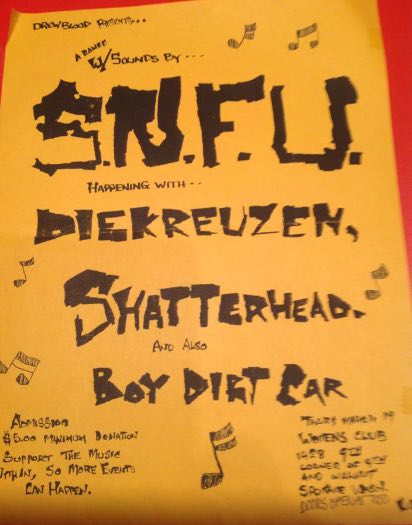 DREW BLOOD PRESENTS...
A DANCE
W/ SOUNDS BY...
S.N.F.U.
HAPPENING WITH..
DIEKREUZEN,
SHATTERHEAD.
AND ALSO
BOY DIRT CAR
ADMISSION
$5.00 MINIMUM DONATION
SUPPORT THE MUSIC
WITHIN, SO MORE EVENTS
CAN HAPPEN.
THURS MARCH 19
WOMENS CLUB
1428 9TH
CORNER OF 9TH
AND WALNUT
SPOKANE WASH.
DOORS